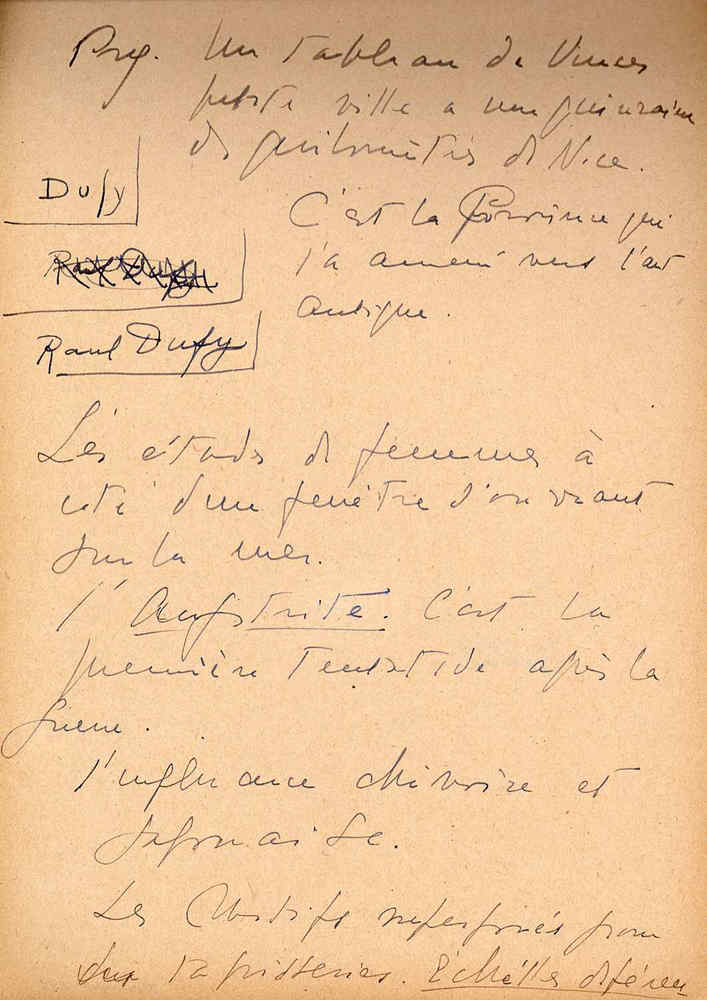 Prog. Un tableau de Vences
petite ville a une quinzaine
de quilomètres de Nice.
Dufy
C'est la Province qui
l'a amené vers l'art
antique.
Raoul Dufy
Raoul Dufy
Les études de femmes à
coté d'une fenêtre s'ouvrant
sur la mer.
l'Anfitrite. C'est la
première tentative après la
guerre.
l'influance chinoise et
japonaise.
Les Motifs superposés pour
tapisseries. Echèlles diféren